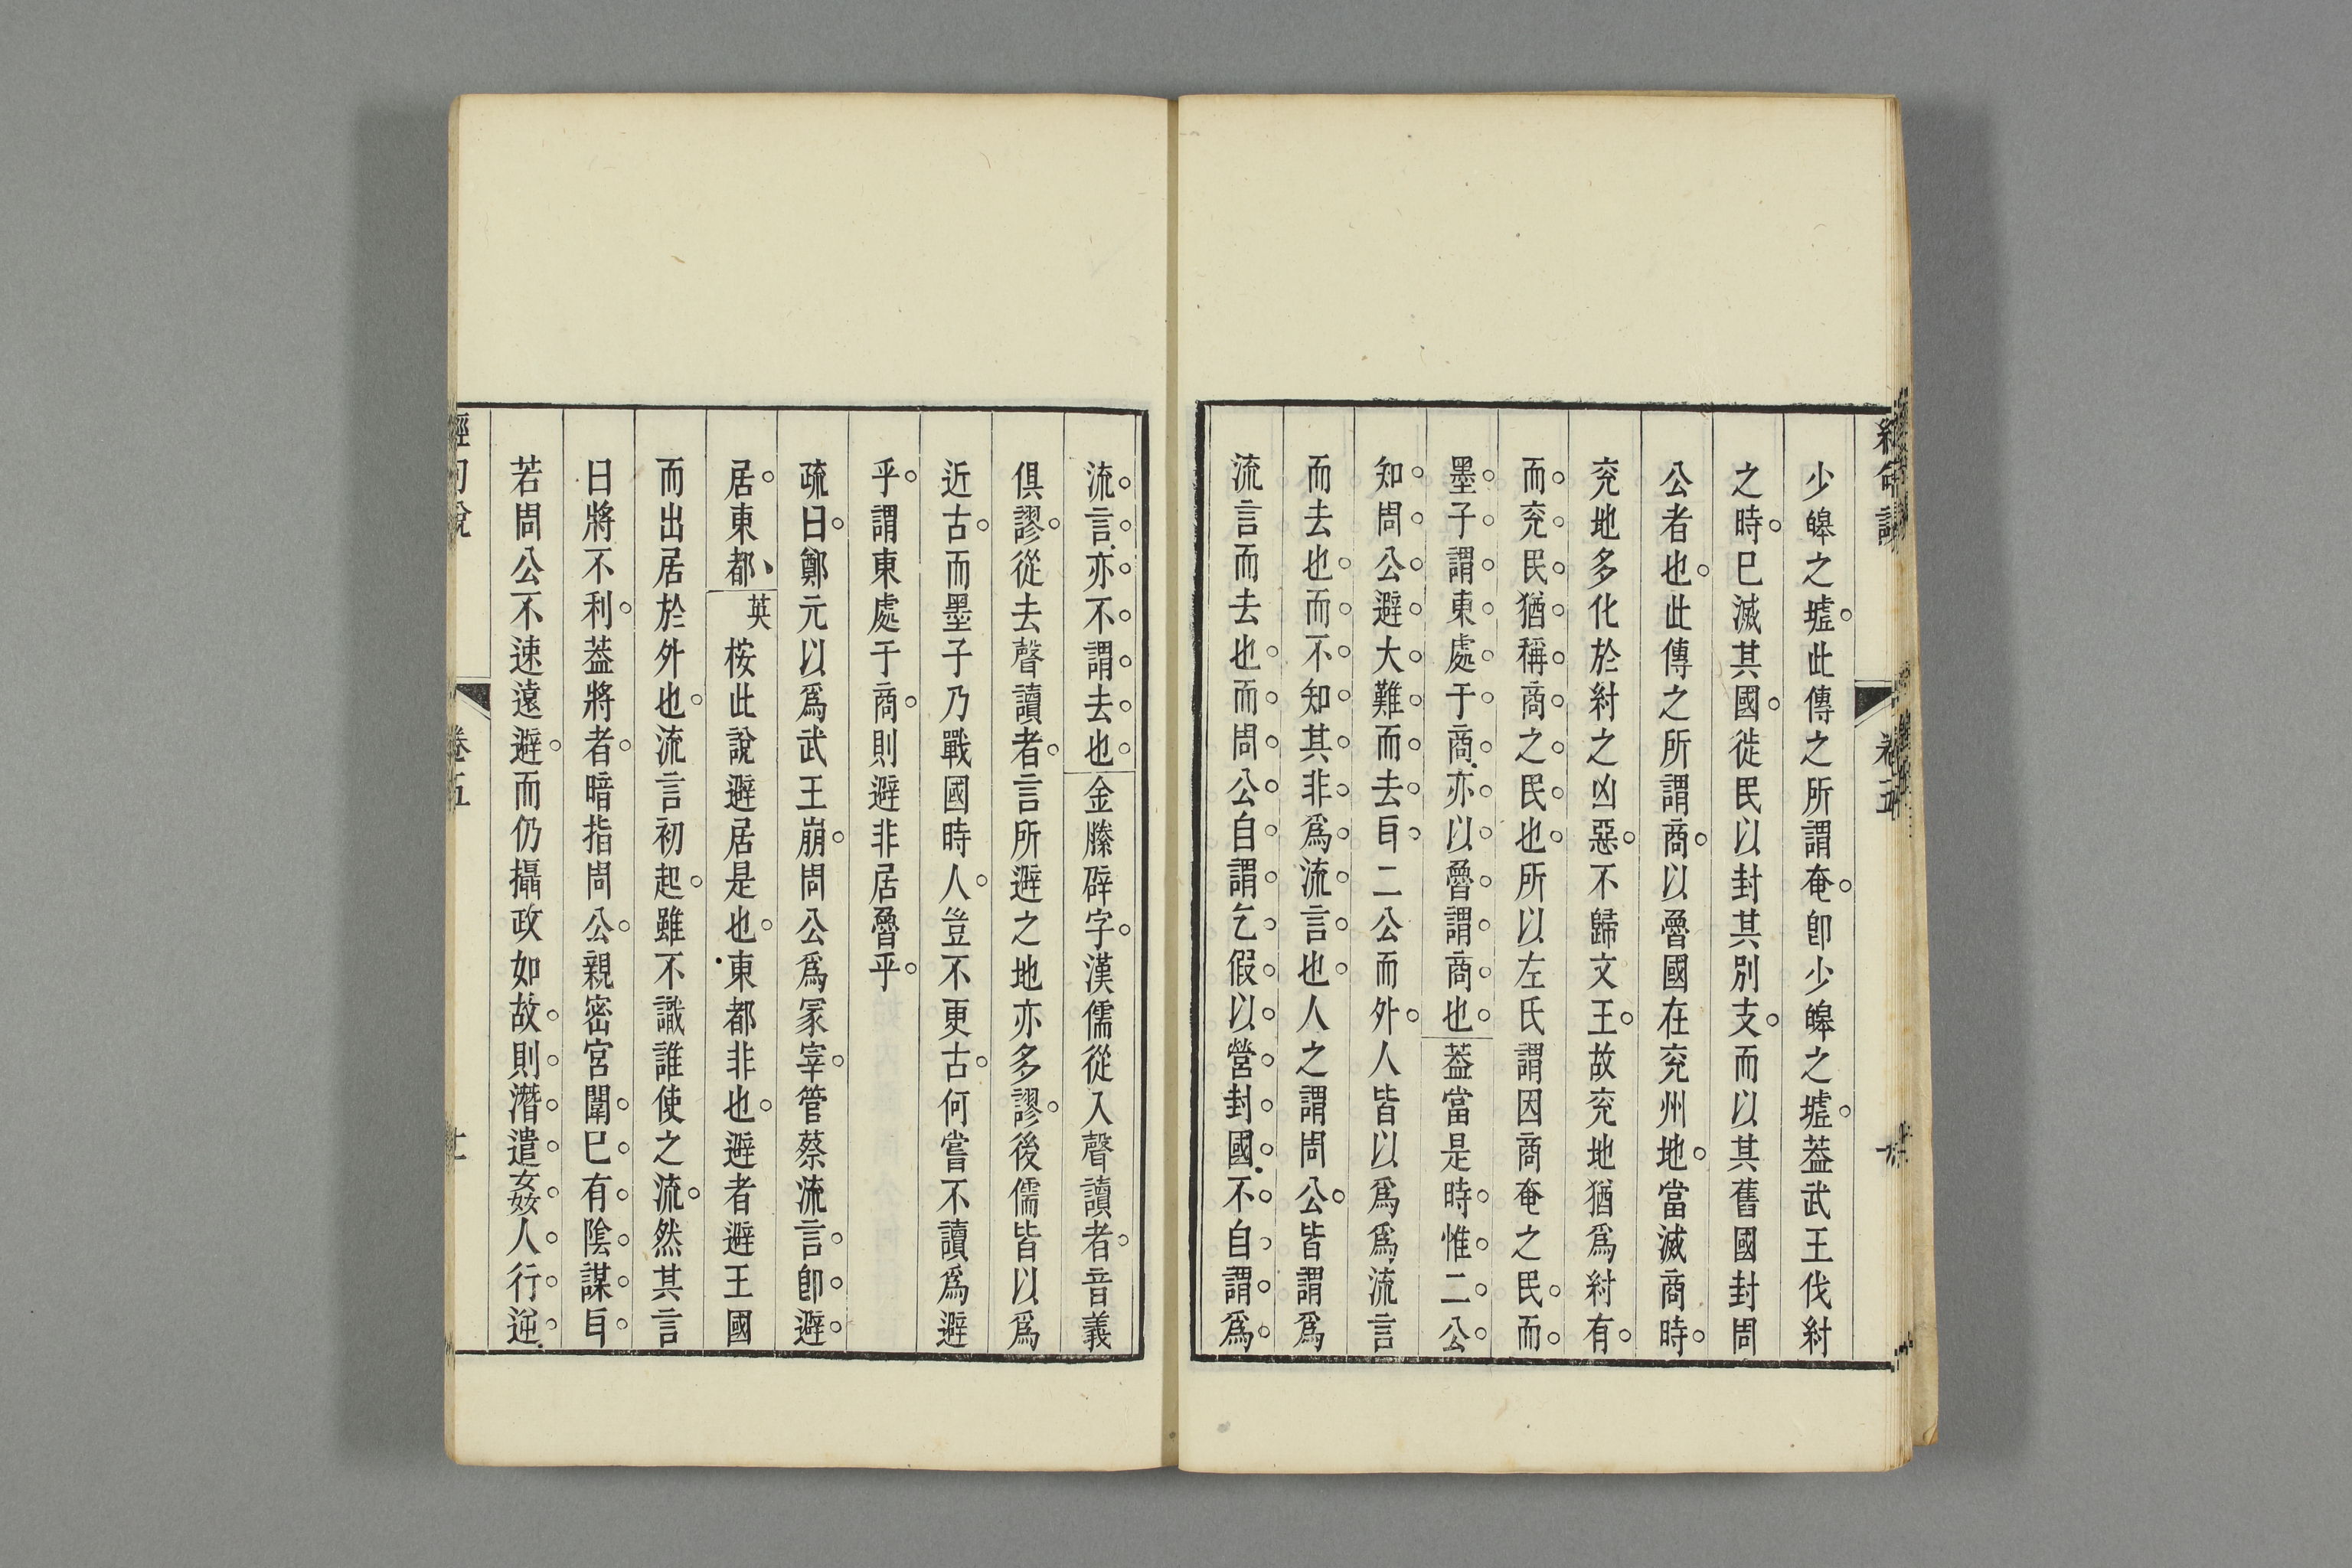 少皞之墟此傳之所謂奄卽少皞之墟葢武王伐紂
之時已滅其國徙民以封其別支而以其舊國封周
公者也此傳之所謂商以魯國在兖州地當滅商時
兖地多化於紂之凶惡不歸文王故兖地猶爲紂有
而兖民猶稱商之民也所以左氏謂因商奄之民而
墨子謂東處于商亦以魯謂商也葢當是時惟二公
知周公避大難而去㠯二公而外人皆以爲爲流言
而去也而不知其非爲流言也人之謂周公皆謂爲
流言而去也而周公自謂乞假以營封國不自謂爲
流言亦不謂去也金縢辟字漢儒從入聲讀者音義
俱謬從去聲讀者言所避之地亦多謬後儒皆以爲
近古而墨子乃戰國時人豈不更古何嘗不讀爲避
乎謂東處于商則避非居魯乎
疏曰鄭元以爲武王崩周公爲冢宰管蔡流言卽避
居東都英桉此說避居是也東都非也避者避王國
而出居於外也流言初起雖不識誰使之流然其言
曰將不利葢將者暗指周公親密宮闈已有陰謀㠯
若周公不速遠避而仍攝政如故則潛遣姦人行逆
經句說 卷五